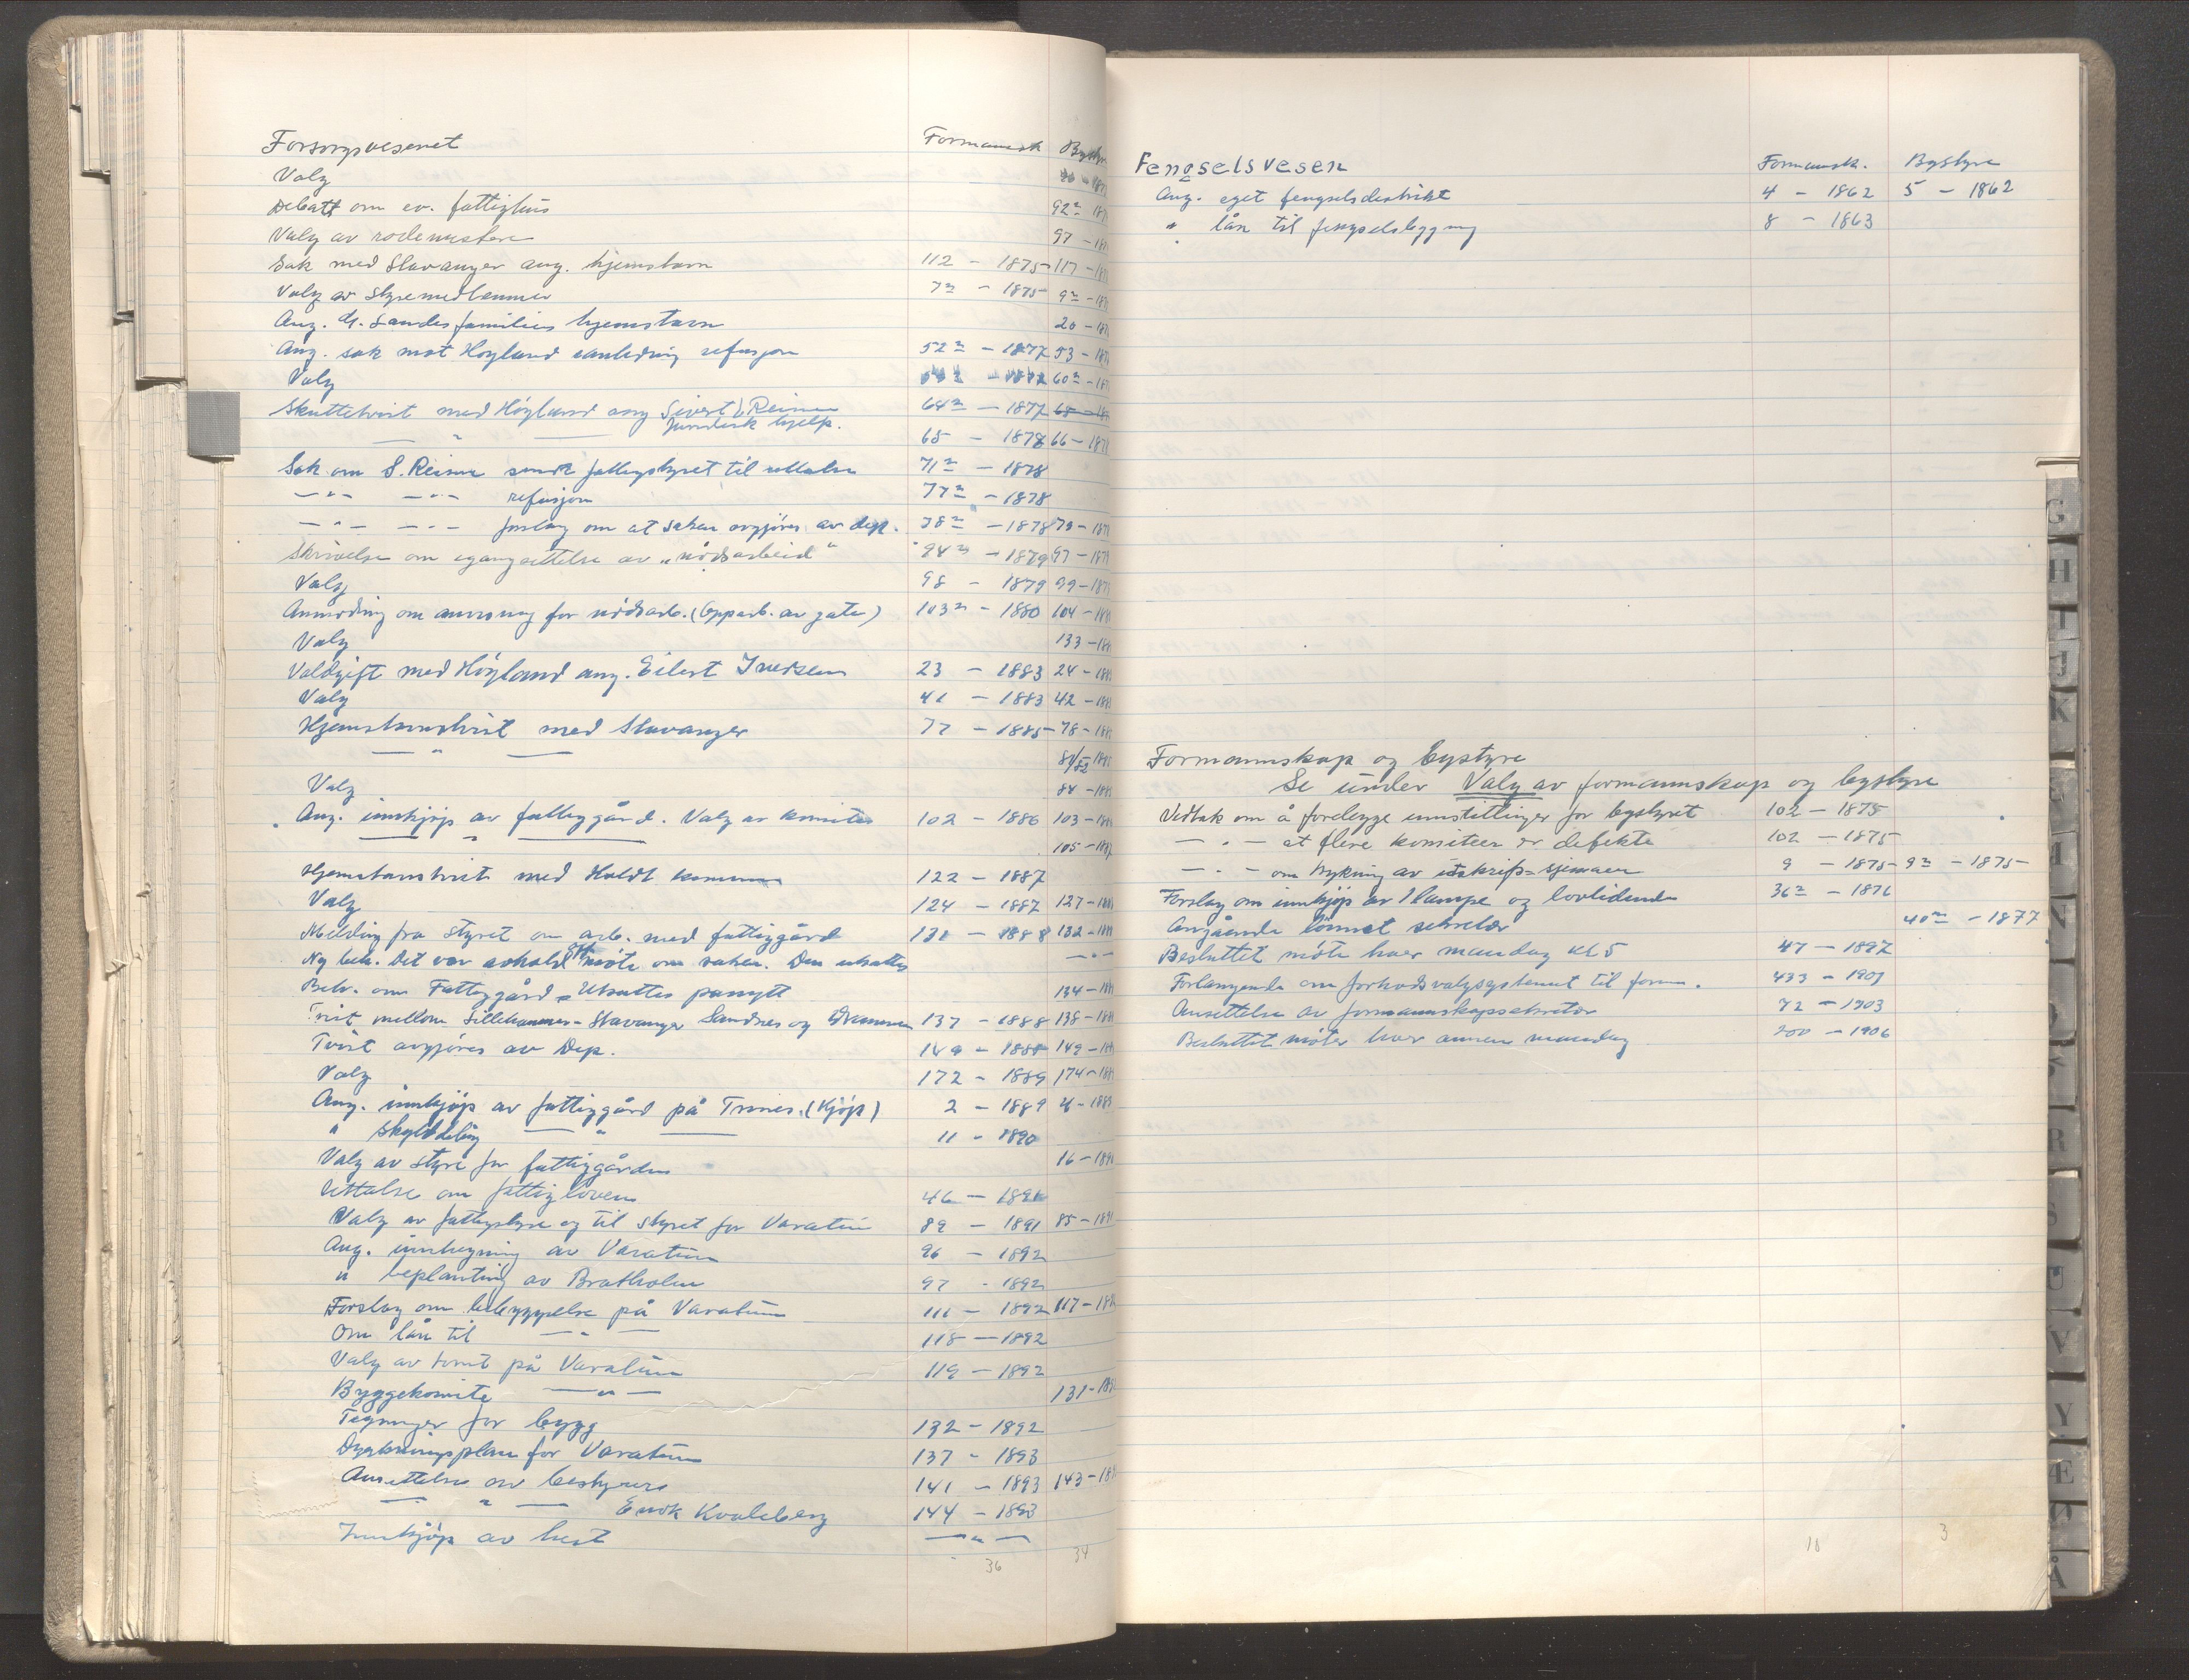 Forsorgsvesenet Formannsk Bysty
Valg
Debatt om ev. fattighus 92n
Valg av rodemestere 97
Sak med Stavanger ang. hjemstavn 112 - 1875 117 -
Valg av styremedlemmer 7n - 1875 9n -
Ang. G. Sandes familiens hjemstavn 20 -
Ang. sak mot Høyland anledning refusjon 52n - 1877 53 -
Valg 60n -
Skattetvist med Høyland ang Sivert Reime 64n - 1877 68
— " — Juridisk hjelp. 65 - 1878 66 -
Sak om S. Reime sendt fattigstyret til uttalse 71n - 1878
— " — — " — refusjon 77n - 1878
— " — — " — forslag om at saken avgjøres av dep. 78n - 1878 79 -
Skrivelse om igangsettelse av „nødsarbeid" 94n - 1879 97 -
Valg 98 - 1879 99 -
Anmodning om anvisning for nødsarb. (Opparb. av gater) 103n - 1880 104 -
Valg 133 -
Voldgift med Høyland ang. Eilert Iversen 23 - 1883 24 -
Valg 41 - 1883 42 -
Hjemstavnstvist med Stavanger 77 - 1885 78 -
— " — 81/82
Valg 84 -
Ang. innkjøp av fattiggård. Valg av komite 102 - 1886 103 -
— " — 105 -
Hjemstavnstvist med Holdt kommune 122 - 1887
Valg 124 - 1887 127 -
Melding fra styret om arb. med fattiggård 131 - 1888 132 -
Ny beh. Det var avholdt møte om saken. Den utsattes — " —
Beh. om Fattiggård - Utsattes panytt 134 -
Tvist mellom Lillehammer - Stavanger Sandnes og Drammen 137 - 1888 138 -
Tvist avgjøres av Dep. 149 - 1888 149 -
Valg 172 - 1889 174 -
Ang. innkjøp av fattiggård på Trones. (Kjøp) 2 - 1889 4 - 1889
" skylddeling — " — 11 - 1890
Valg av styre for fattiggården 16 -
Uttalse om fattigloven 46 - 1891
Valg av fattigstyre og til styret for Varatun 82 - 1891 85 -
Ang. innhegning av Varatun 96 - 1892
" beplanting av Bratholm 97 - 1892
Forslag om bebyggelse på Varatun 111 - 1892 117 -
Om lån til — " — 118 - 1892
Valg av tomt på Varatun 119 - 1892
Byggekomite — " — 131 -
Tegninger for bygg 132 - 1892
Dyrkningsplan for Varatun 137 - 1893
Ansettelse av bestyrer 141 - 1893 143 -
— " — Enok Kvaleberg 144 - 1893
Innkjøp av hest — " —
36 34
Fengselsvesen Formannsk. Bystyre
Ang. eget fengselsdistrikt 4 - 1862 5 - 1862
" lån til fengselsbygning 8 - 1863
Formannskap og bystyre
Se under Valg av formannskap og bystyre
Vedtak om å forelegge innstillinger for bystyret 102 - 1875
— " — at flere komiteer er defekte 102 - 1875
— " — om trykning av utskrifs-sjemaer 9 - 1875 - 9n - 1875
Forslag om innkjøp av 1 lampe og lovtidende 36n - 1876
Angående lønnet sekretær 40n - 1877
Besluttet møte hver mandag kl 5 47 - 1897
Forlangende om forholdsvalgsystemet til form. 433 - 1901
Ansettelse av formannskapssekretær 72 - 1903
Besluttet møter hver annen mandag 200 - 1906
18 3
G
H
I
J
K
N
R
S
U
V
Y
Æ
Å